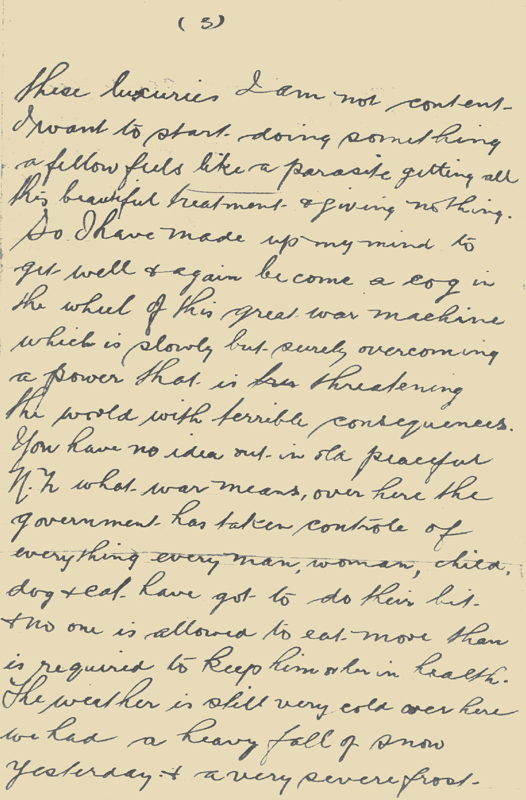 (3)
these luxuries I am not content
I want to start doing something
a fellow feels like a parasite getting all
this beautiful treatment & giving nothing.
So I have made up my mind to
get well & again become a cog in
the wheel of this great war machine
which is slowly but surely overcoming
a power that is threatening
the world with terrible consequences.
You have no idea out in old peaceful
N.Z what war means, over here the
government has taken controle of
everything every man, woman, child,
dog & cat have got to do their bit
& no one is allowed to eat more than
is required to keep him or her in health.
The weather is still very cold over here
we had a heavy fall of snow
yesterday & a very severe frost.